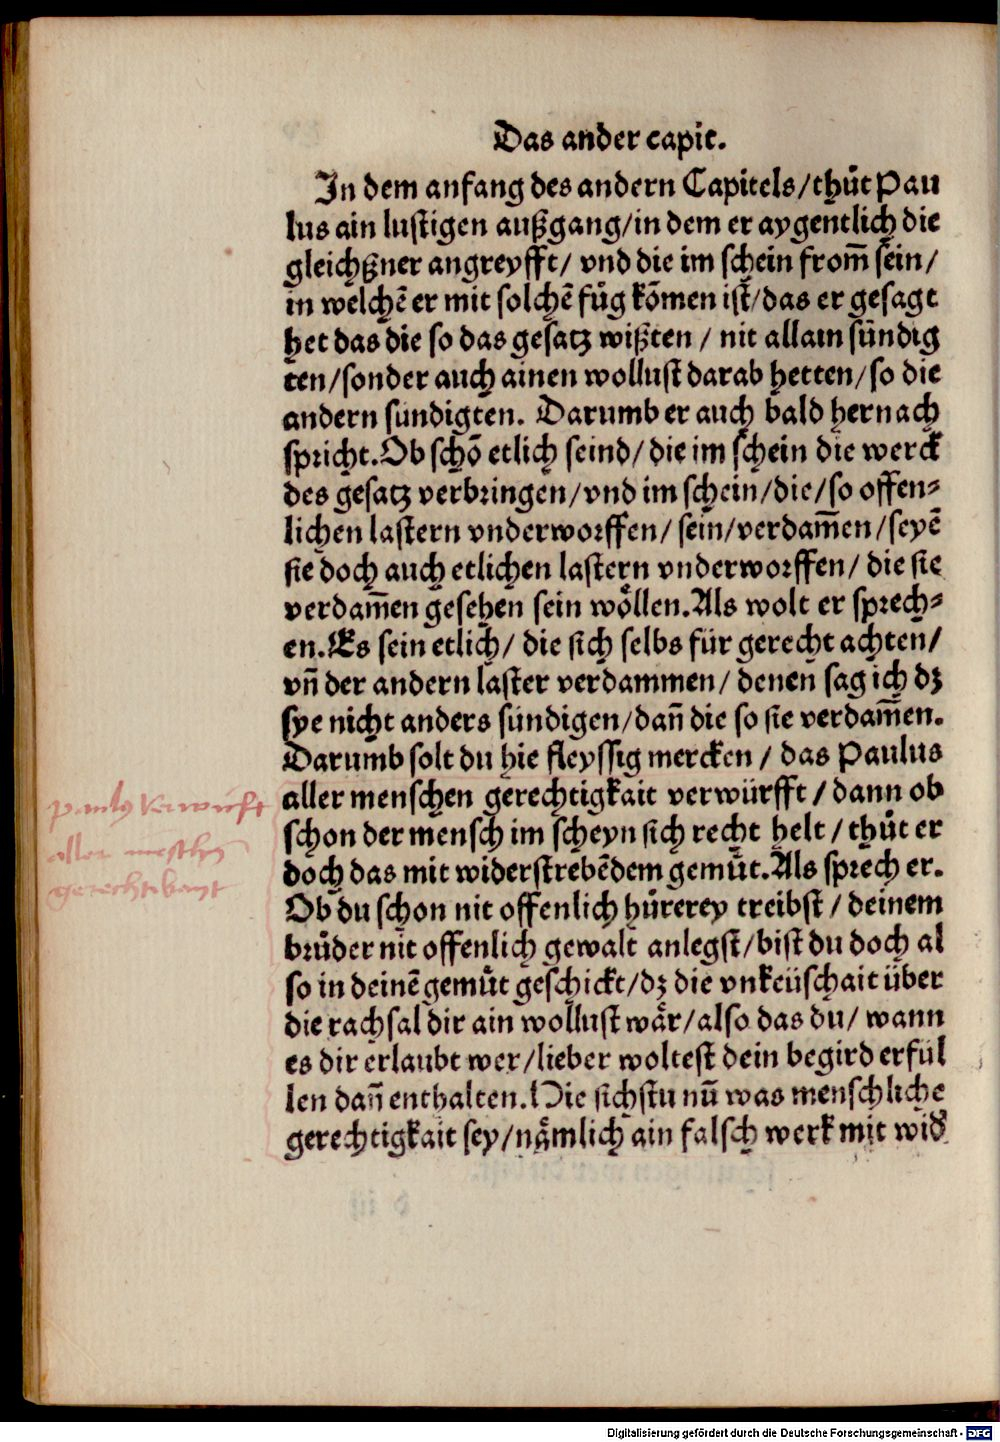 Das ander capit.
In dem anfang des andern Capitels/thůt Pau
lus ain lustigen außgang/in dem er aygentlich die
gleichßner angreyfft/ vnd die im schein from̃ sein/
in welchẽ er mit solchẽ fůg kõmen ist/das er gesagt
het das die so das gesatz wißten / nit allain sündig
ten/sonder auch ainen wollust darab hetten/so die
andern sündigten. Darumb er auch bald hernach
spricht.Ob schõ etlich seind/die im schein die werck
des gesatz verbringen/vnd im schein/die/so offen⸗
lichen lastern vnderworffen/ sein/verdam̃en/seyẽ
sie doch auch etlichen lastern vnderworffen/ die sie
verdam̃en gesehen sein woͤllen.Als wolt er sprech⸗
en.Es sein etlich/ die sich selbs für gerecht achten/
vñ der andern laster verdammen/ denen sag ich dz
sye nicht anders sündigen/dañ die so sie verdam̃en.
Darumb solt du hie fleyssig mercken / das Paulus
aller menschen gerechtigkait verwürfft / dann ob
schon der mensch im scheyn sich recht helt / thůt er
doch das mit widerstrebẽdem gemüt.Als sprech er.
Ob du schon nit offenlich hůrerey treibst / deinem
brůder nit offenlich gewalt anlegst/bist du doch al
so in deinẽ gemüt geschickt/dz die vnkeüschait über
die rachsal dir ain wollust waͤr/also das du/ wann
es dir erlaubt wer/lieber woltest dein begird erfül
len dañ enthalten.Hie sichstu nũ was menschliche
gerechtigkait sey/naͤmlich ain falsch werk mit wid̕
paulus verwurfft
aller
gerechtikayt
Digitalisierung gefördert durch die Deutsche Forschungsgemeinschaft - DFG